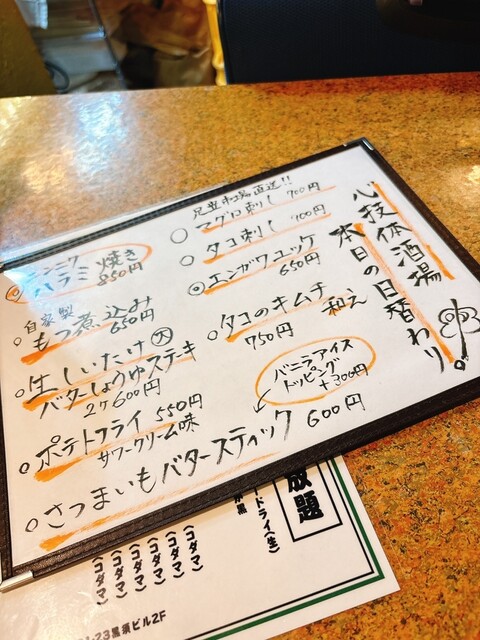 心技体酒場
本日の日替わり。
足立市場直送!!
マグロ刺し 700円
タコ刺し 700円
エンガワユッケ
650円
タコのキムチ和え
750円
ニンニク
ハラミ焼き
850円
自家製
もつ煮込み
650円
生しいたけ大
バターしょうゆステーキ
2ケ600円
ポテトフライ 550円
サワークリーム味
さつまいもバタースティック 600円
バニラアイス
トッピング
+300円
放題
ードライ(生)
(コダマ)
(コダマ)
(コダマ)
(コダマ)
(コダマ)
-23黒須ビル2F